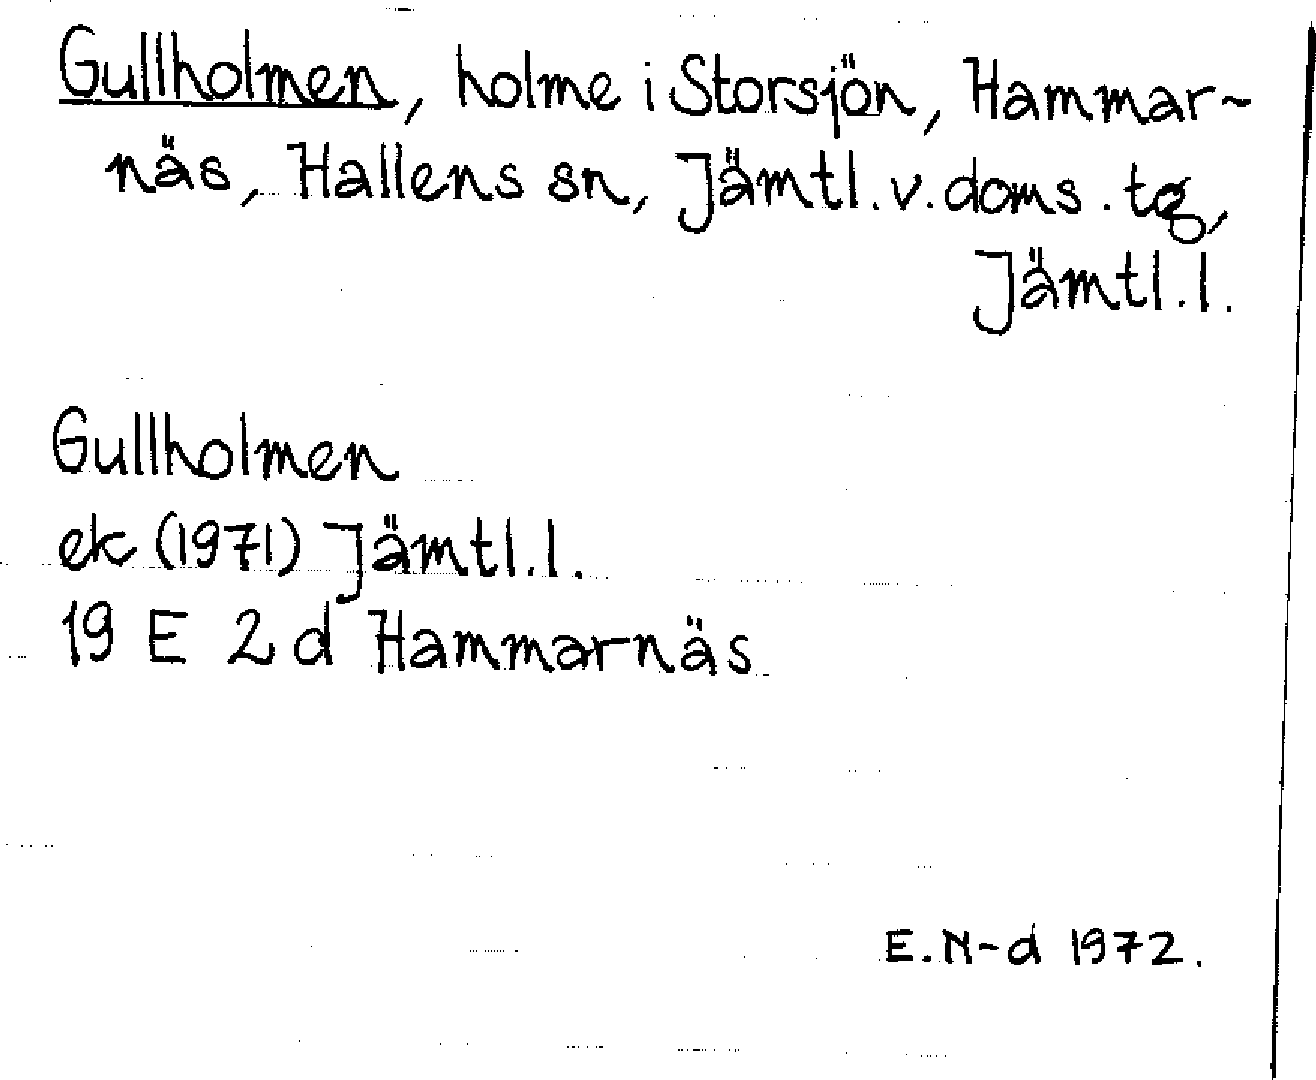 Gullholmen, holme i Storsjön, Hammar-
näs, Hallens sn, Jämtl. v. doms. tg,
Jämtl. l.
Gullholmen
ek (1971) Jämtl. l.
19 E 2 d Hammarnäs
E. N-d 1972.